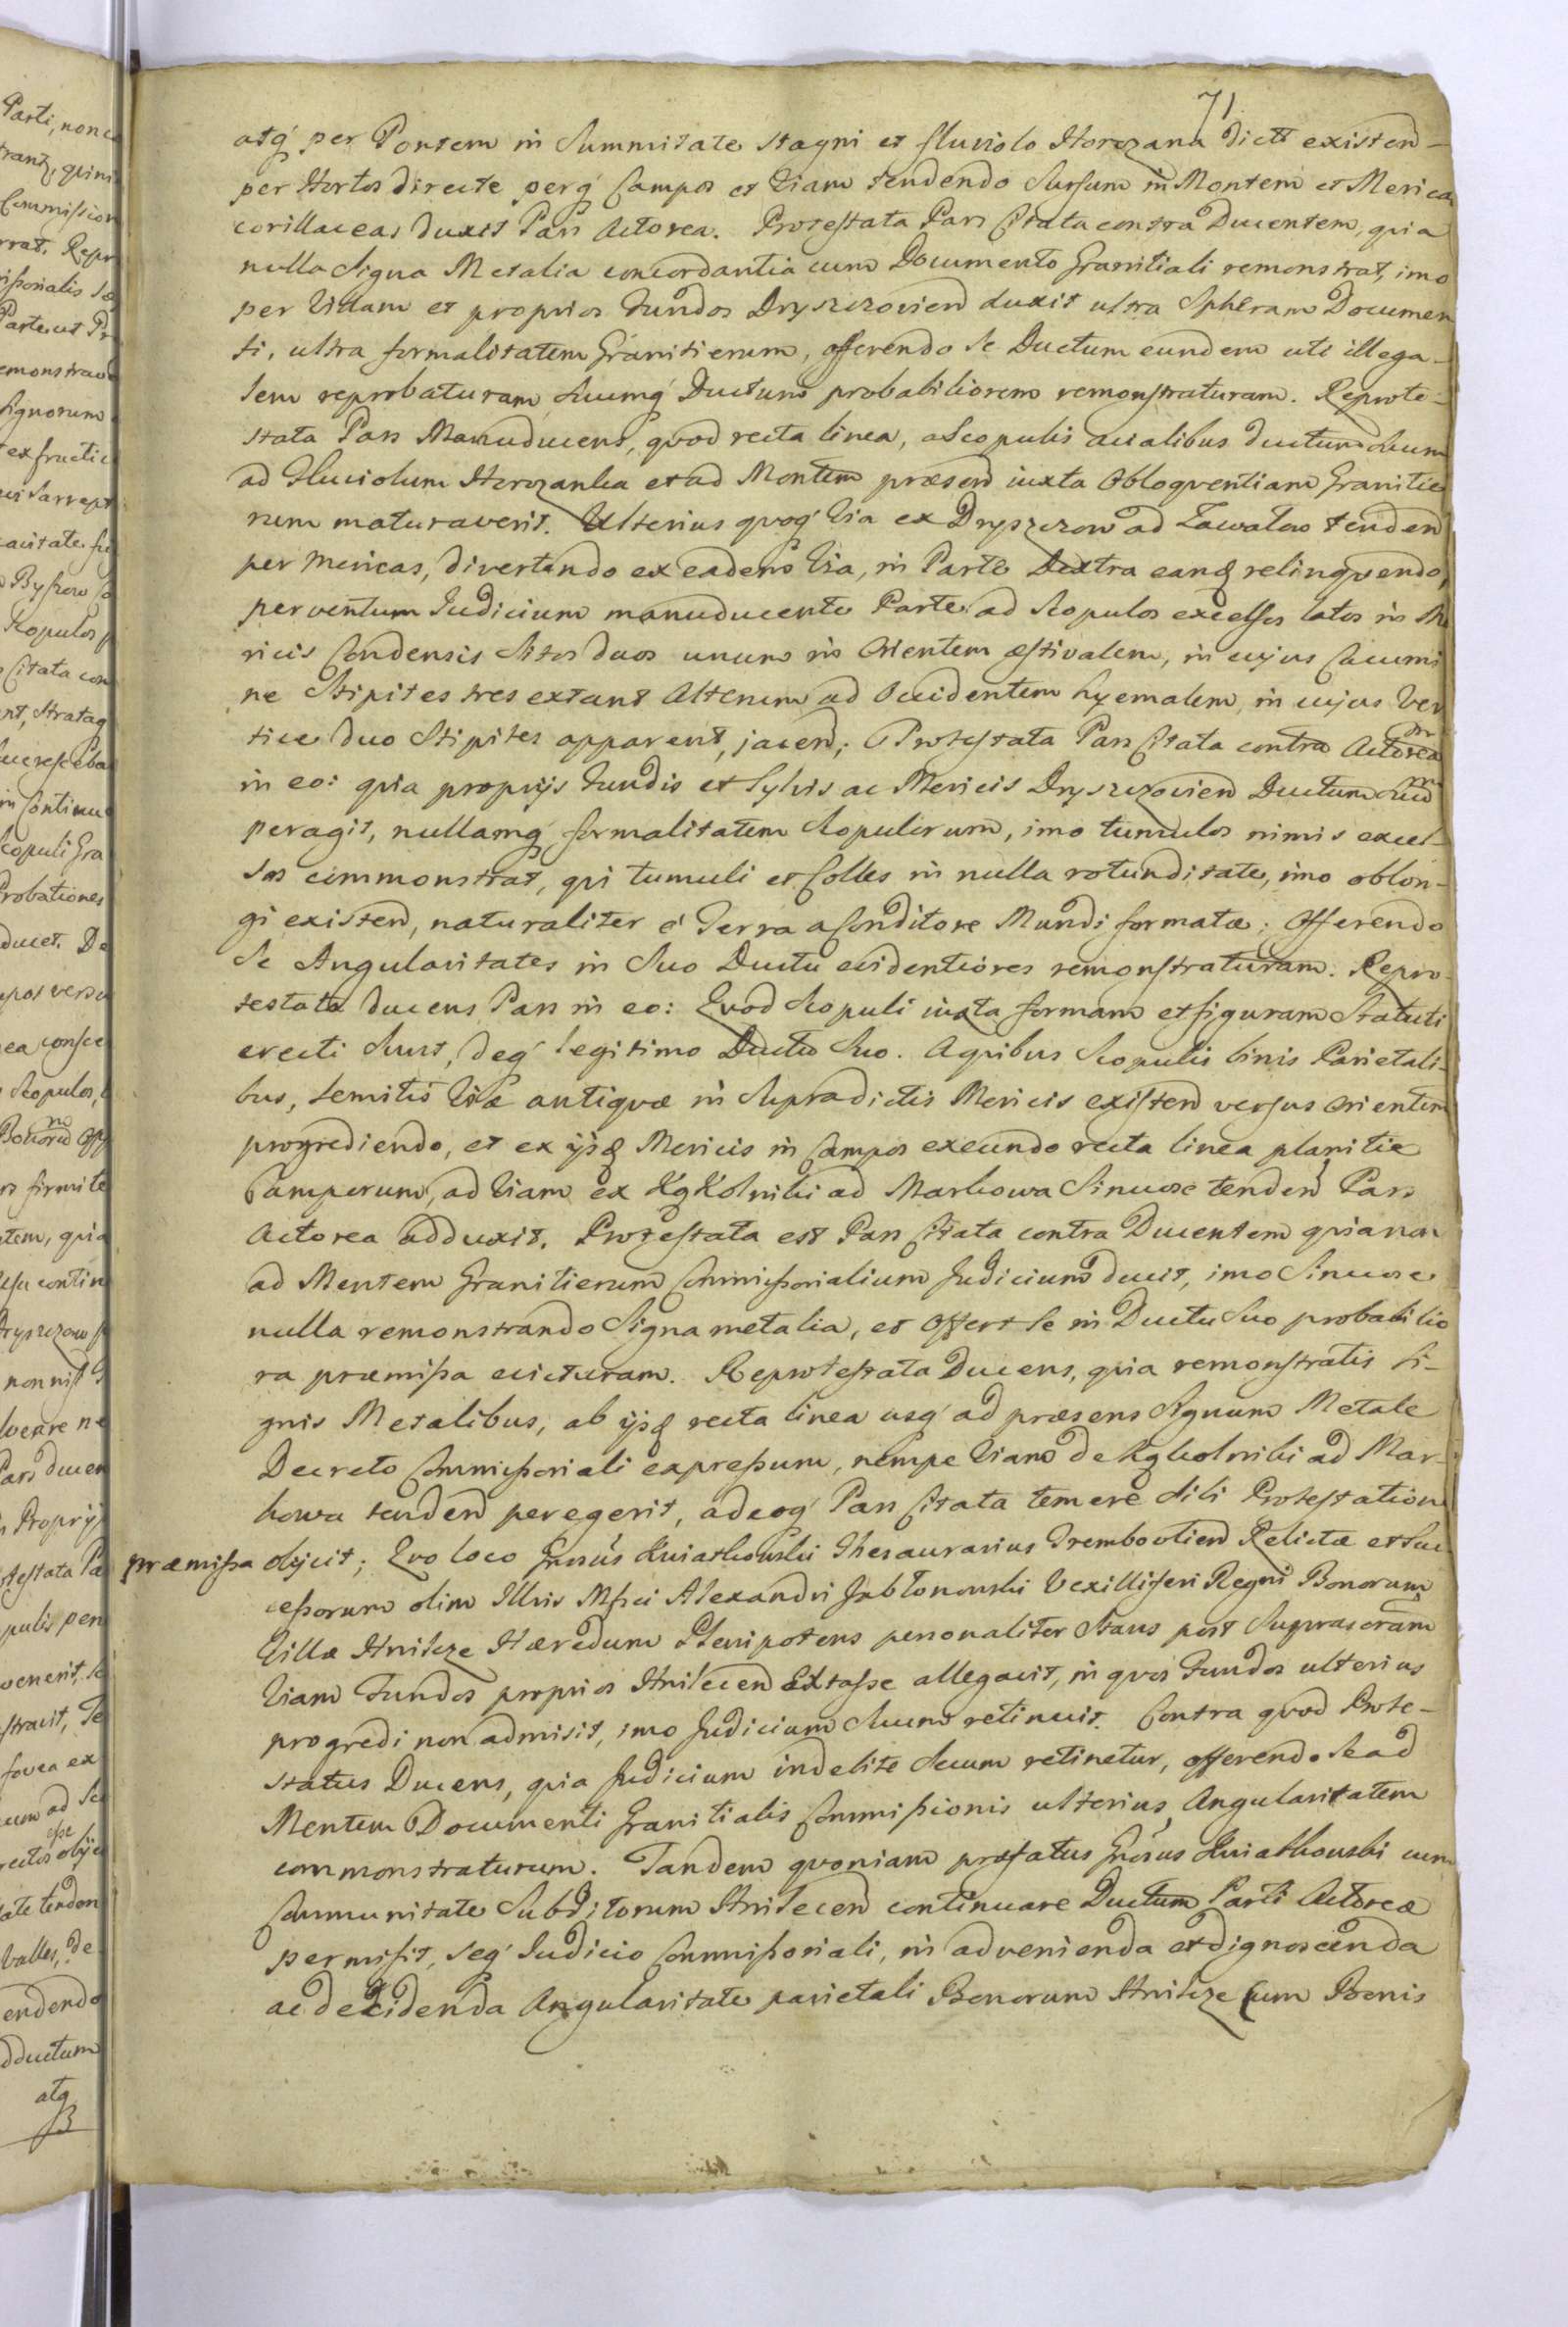 71
atq́ per Pontem in Summitate Stagni et fluviolo Horozana dictt existend-
per Hortos directe perq́ Campos et Viam tendendo Sursum in Montem et Merica
corillaceas duxit Pars Actorea. Protestata Pars Citata contra Ducentem, quia
nulla Signa Metalia concordantia cum Documento Granitiali remonstrat, imo
per Villam et proprios Fundos Dryszczovien duxit ultra Spheram Documen
ti, ultra formalitatem Granitierum, offerendo Se Ductum eundem uti illega-
lem reprobaturam Suumq́ Ductum probabiliorem remonstraturam. Reprote-
stata Pars Manuducens, quod recta linea, a Scopulis acialibus ductum Suum
ad Fluviolum Horozanka et ad Montem præsend iuxta Obloquentiam Granitie
rum maturaverit. Ulterius quoq́ Via ex Dryszczow ad Zawalow tenden
per Mericas, divertendo ex eadem Via, in Parte Dextra eanq relinquendo,
perventum Iudicium manuducente Parte ad Scopulos excelsos latos in Me
ricis Condensis Sitos duos unum in Orientem æstivalem, in cujus Cacumi
ne Stipites tres extant Alterum ad Occidentem hyemalem, in cujus Ver
tice duo Stipites apparent, jacend; Protestata Pars Citata contra Actorea m
in eo: quia proprijs Fundis et Sylvis ac Mericis Dryszczovien Ductum Suu m
peragit, nullamq́ formalitatem Scopulorum, imo tumulos nimis excel-
sos commonstrat, qui tumuli et Colles in nulla rotunditate, imo oblon-
gi existend, naturaliter é Terra a Conditore Mundi formatæ; Offerendo
Se Angularitates in Suo Ductu evidentiores remonstraturam. Repro-
testata ducens Pars in eo: Quod Scopuli iuxta formam et figuram Statuti
erecti Sunt, deq́ legitimo Ductu Suo. A quibus Scopulis binis Parietali-
bus, Semitis Viæ antiquæ in Supradictis Mericis existend versus Orientem
progrediendo, et ex ijsq Mericis in Campos exeundo recta linea planitie
Camporum, ad Viam ex KąKolniki ad Markowa Sinuose tenden Pars
Actorea adduxit. Protestata est Pars Citata contra Ducentem quia non
ad Mentem Granitierum Commissorialium Judicium ducit, imo Sinuose
nulla remonstrando Signa metalia, et Offert Se in Ductu Suo probabilio
ra præmissa evicturam. Reprotestata Ducens, quia remonstratis Si-
gnis Metalibus, ab ijsq recta linea usq́ ad præsens Signum Metale
Decreto Commissoriali expressum, nempe Viam de Kąkolniki ad Mar-
kowa tenden peregerit, adeoq́ Pars Citata temere Sibi Protestation
præmissa objicit; Quo loco Gnosus Kwiatkowski Thesaurarius Trembovlien Relictæ et Suc
cessorum olim Illris Mfici Alexandri Jabłonowski Vexilliferi Regni Bonorum
Villæ Hnilcze Hæredum Plenipotens personaliter Stans post Suprascram
Viam Fundos proprios Hnilecen Extasse allegavit, in quos Fundos ulterius
progredi non admisit, imo Judicium Suum retinuit. Contra quod Prote-
status Ducens, quia Judicium indebite Suum retinetur, offerendo Se ad
Mentem Documenti Granitialis Commissionis ulterius Angularitatem
commonstraturum. Tandem quoniam præfatus Gnosus Kwiatkowski cum
Communitate Subditorum Hnilecen continuare Ductum Parti Actoreæ
permisit, Seq́ Iudicio Commissoriali, in advenienda et dignoscenda
ac decidenda Angularitate parietali Bonorum Hnilcze Cum Bonis